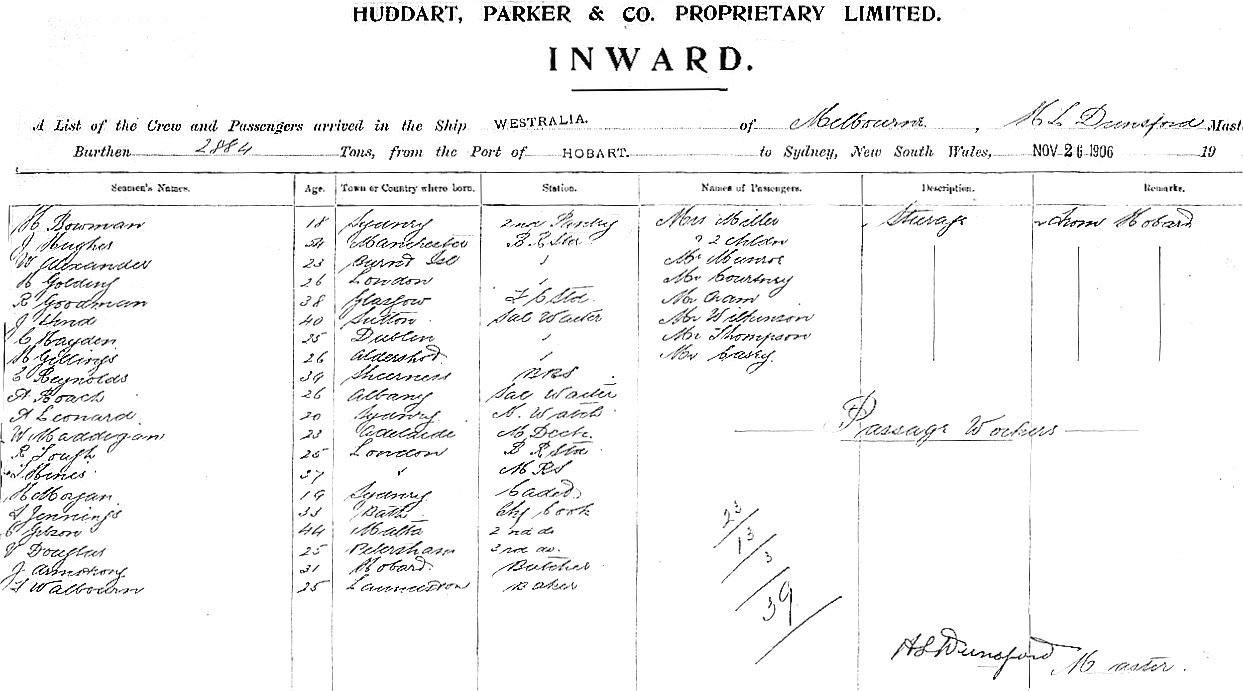 HUDDART, PARKER & CO. PROPRIETARY LIMITED.
INWARD.
A List of the Crew and Passengers arrived in the Ship WESTRALIA. of Melbourne, Dunsford Mast
Burthen 2884 Tons, from the Port of HOBART. to Sydney, New South Wales, NOV 26 1906 19
Seamen's Names. Age. Town or Country where born. Station. Names of Passengers. Description. Remarks.
Bowman 18 Sydney 2nd Pantry Mrs Miller Steerage From Hobart
J Hughes Manchester B R Std 2 chldn
W Alexander 23 Burnt Isl Mr Munroe
H Golding 26 London Mr Courtney
R Goodman 38 Glasgow F C Std. Mr Cram
J Hind 40 Sutton Sal Waiter Mr Wilkinson
C Hayden 25 Dublin Mr Thompson
H Gillings 26 Aldershot Mr Casey
E Reynolds 39 Sheerness BRS
A Roach 26 Albany Sal Waiter
A Leonard 20 Sydney N. Watch
W Maddigan 23 Adelaide M Deck Passage Workers
R Tough 25 London B R Std
Hines 37 " M R S
H Morgan 19 Sydney Caded
Jennings 33 Bath Chf Cook
C Gibson 44 Malta 2nd do
V Douglas 25 Petersham 3rd do.
J Armstrong 31 Hobart Butcher
Walbourn 25 Launceston Baker
23
13
3
39
Dunsford Master.